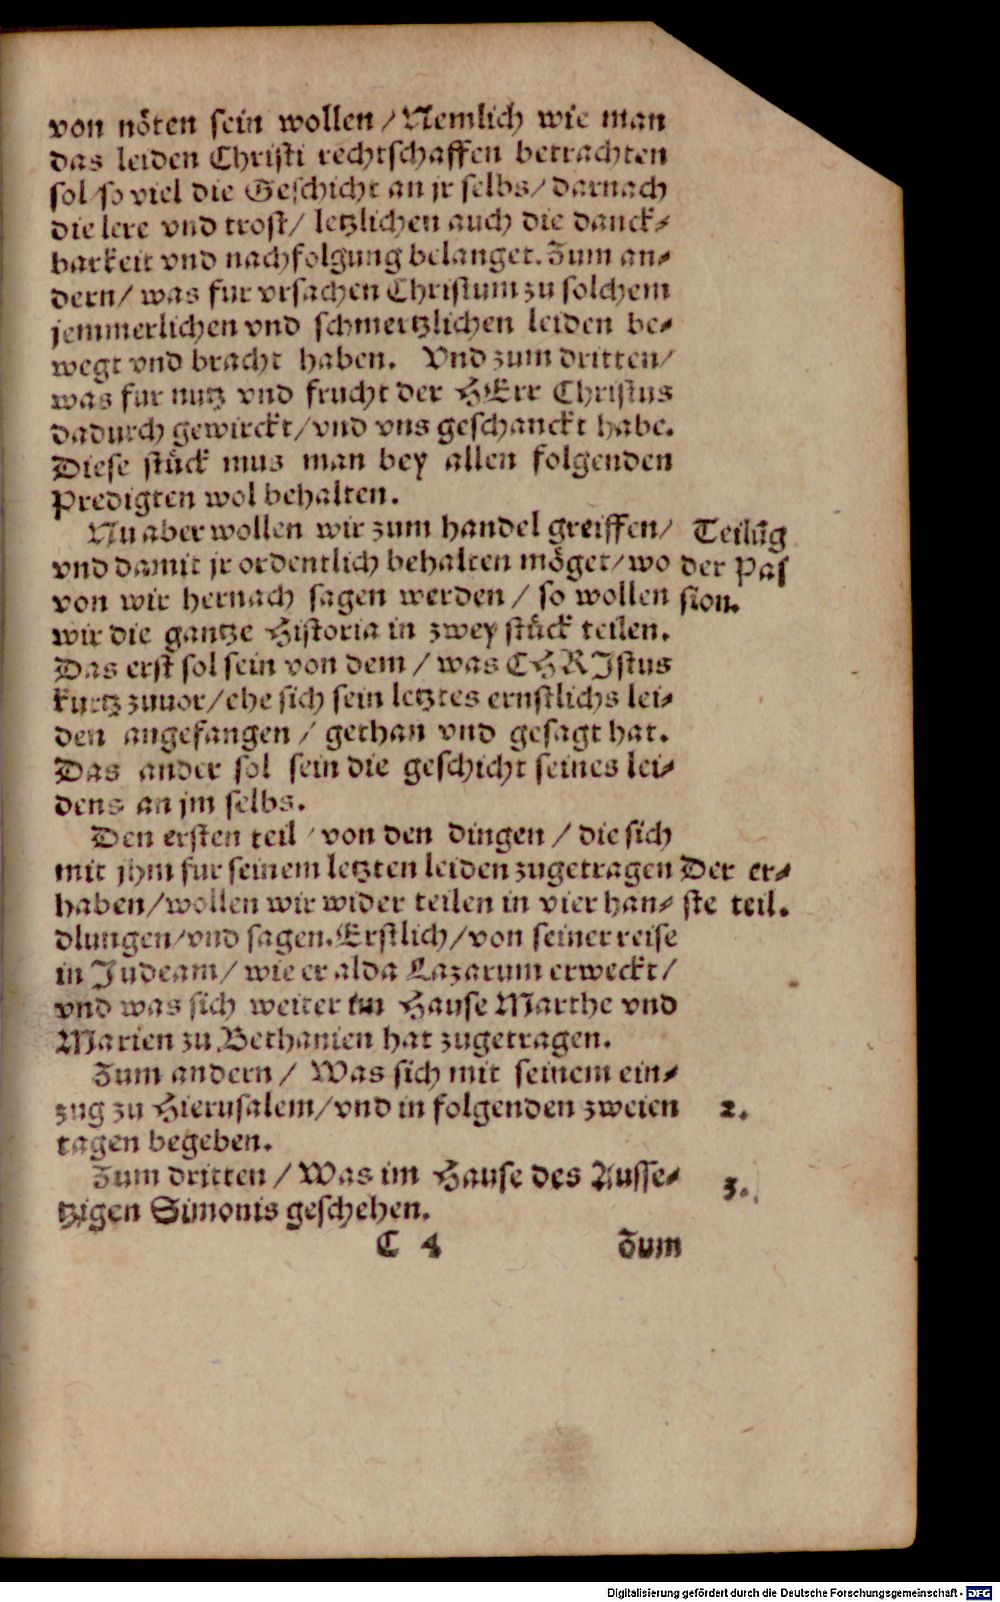 von nöten sein wollen / Nemlich wie man
das leiden Christi rechtschaffen betrachten
sol / so viel die Geschicht an jr selbs / darnach
die lere vnd trost / letzlichen auch die danck⸗
barkeit vnd nachfolgung belanget. Zum an⸗
dern / was fur vrsachen Christum zu solchem
jemmerlichen vnd schmertzlichen leiden be⸗
wegt vnd bracht haben. Vnd zum dritten /
was fur nutz vnd frucht der HErr Christus
dadurch gewirckt / vnd vns geschanckt habe.
Diese stück mus man bey allen folgenden
Predigten wol behalten.
Nu aber wollen wir zum handel greiffen /
vnd damit jr ordentlich behalten möget / wo
von wir hernach sagen werden / so wollen
wir die gantze Historia in zwey stück teilen.
Teilũg
der Pas
sion.
Das erst sol sein von dem / was CHRJstus
kurtz zuuor / ehe sich sein letztes ernstlichs lei⸗
den angefangen / gethan vnd gesagt hat.
Das ander sol sein die geschicht seines lei⸗
dens an jm selbs.
Den ersten teil / von den dingen / die sich
mit jhm fur seinem letzten leiden zugetragen
haben / wollen wir wider teilen in vier han⸗
Der er⸗
ste teil.
dlungen / vnd sagen. Erstlich / von seiner reise
in Judeam / wie er alda Lazarum erweckt /
vnd was sich weiter im Hause Marthe vnd
Marien zu Bethanien hat zugetragen.
Zum andern / Was sich mit seinem ein⸗
zug zu Hierusalem / vnd in folgenden zweien
2.
tagen begeben.
Zum dritten / Was im Hause des Ausse⸗
3.
tzigen Simonis geschehen.
C 4 Zum
Digitalisierung gefördert durch die Deutsche Forschungsgemeinschaft - DFG